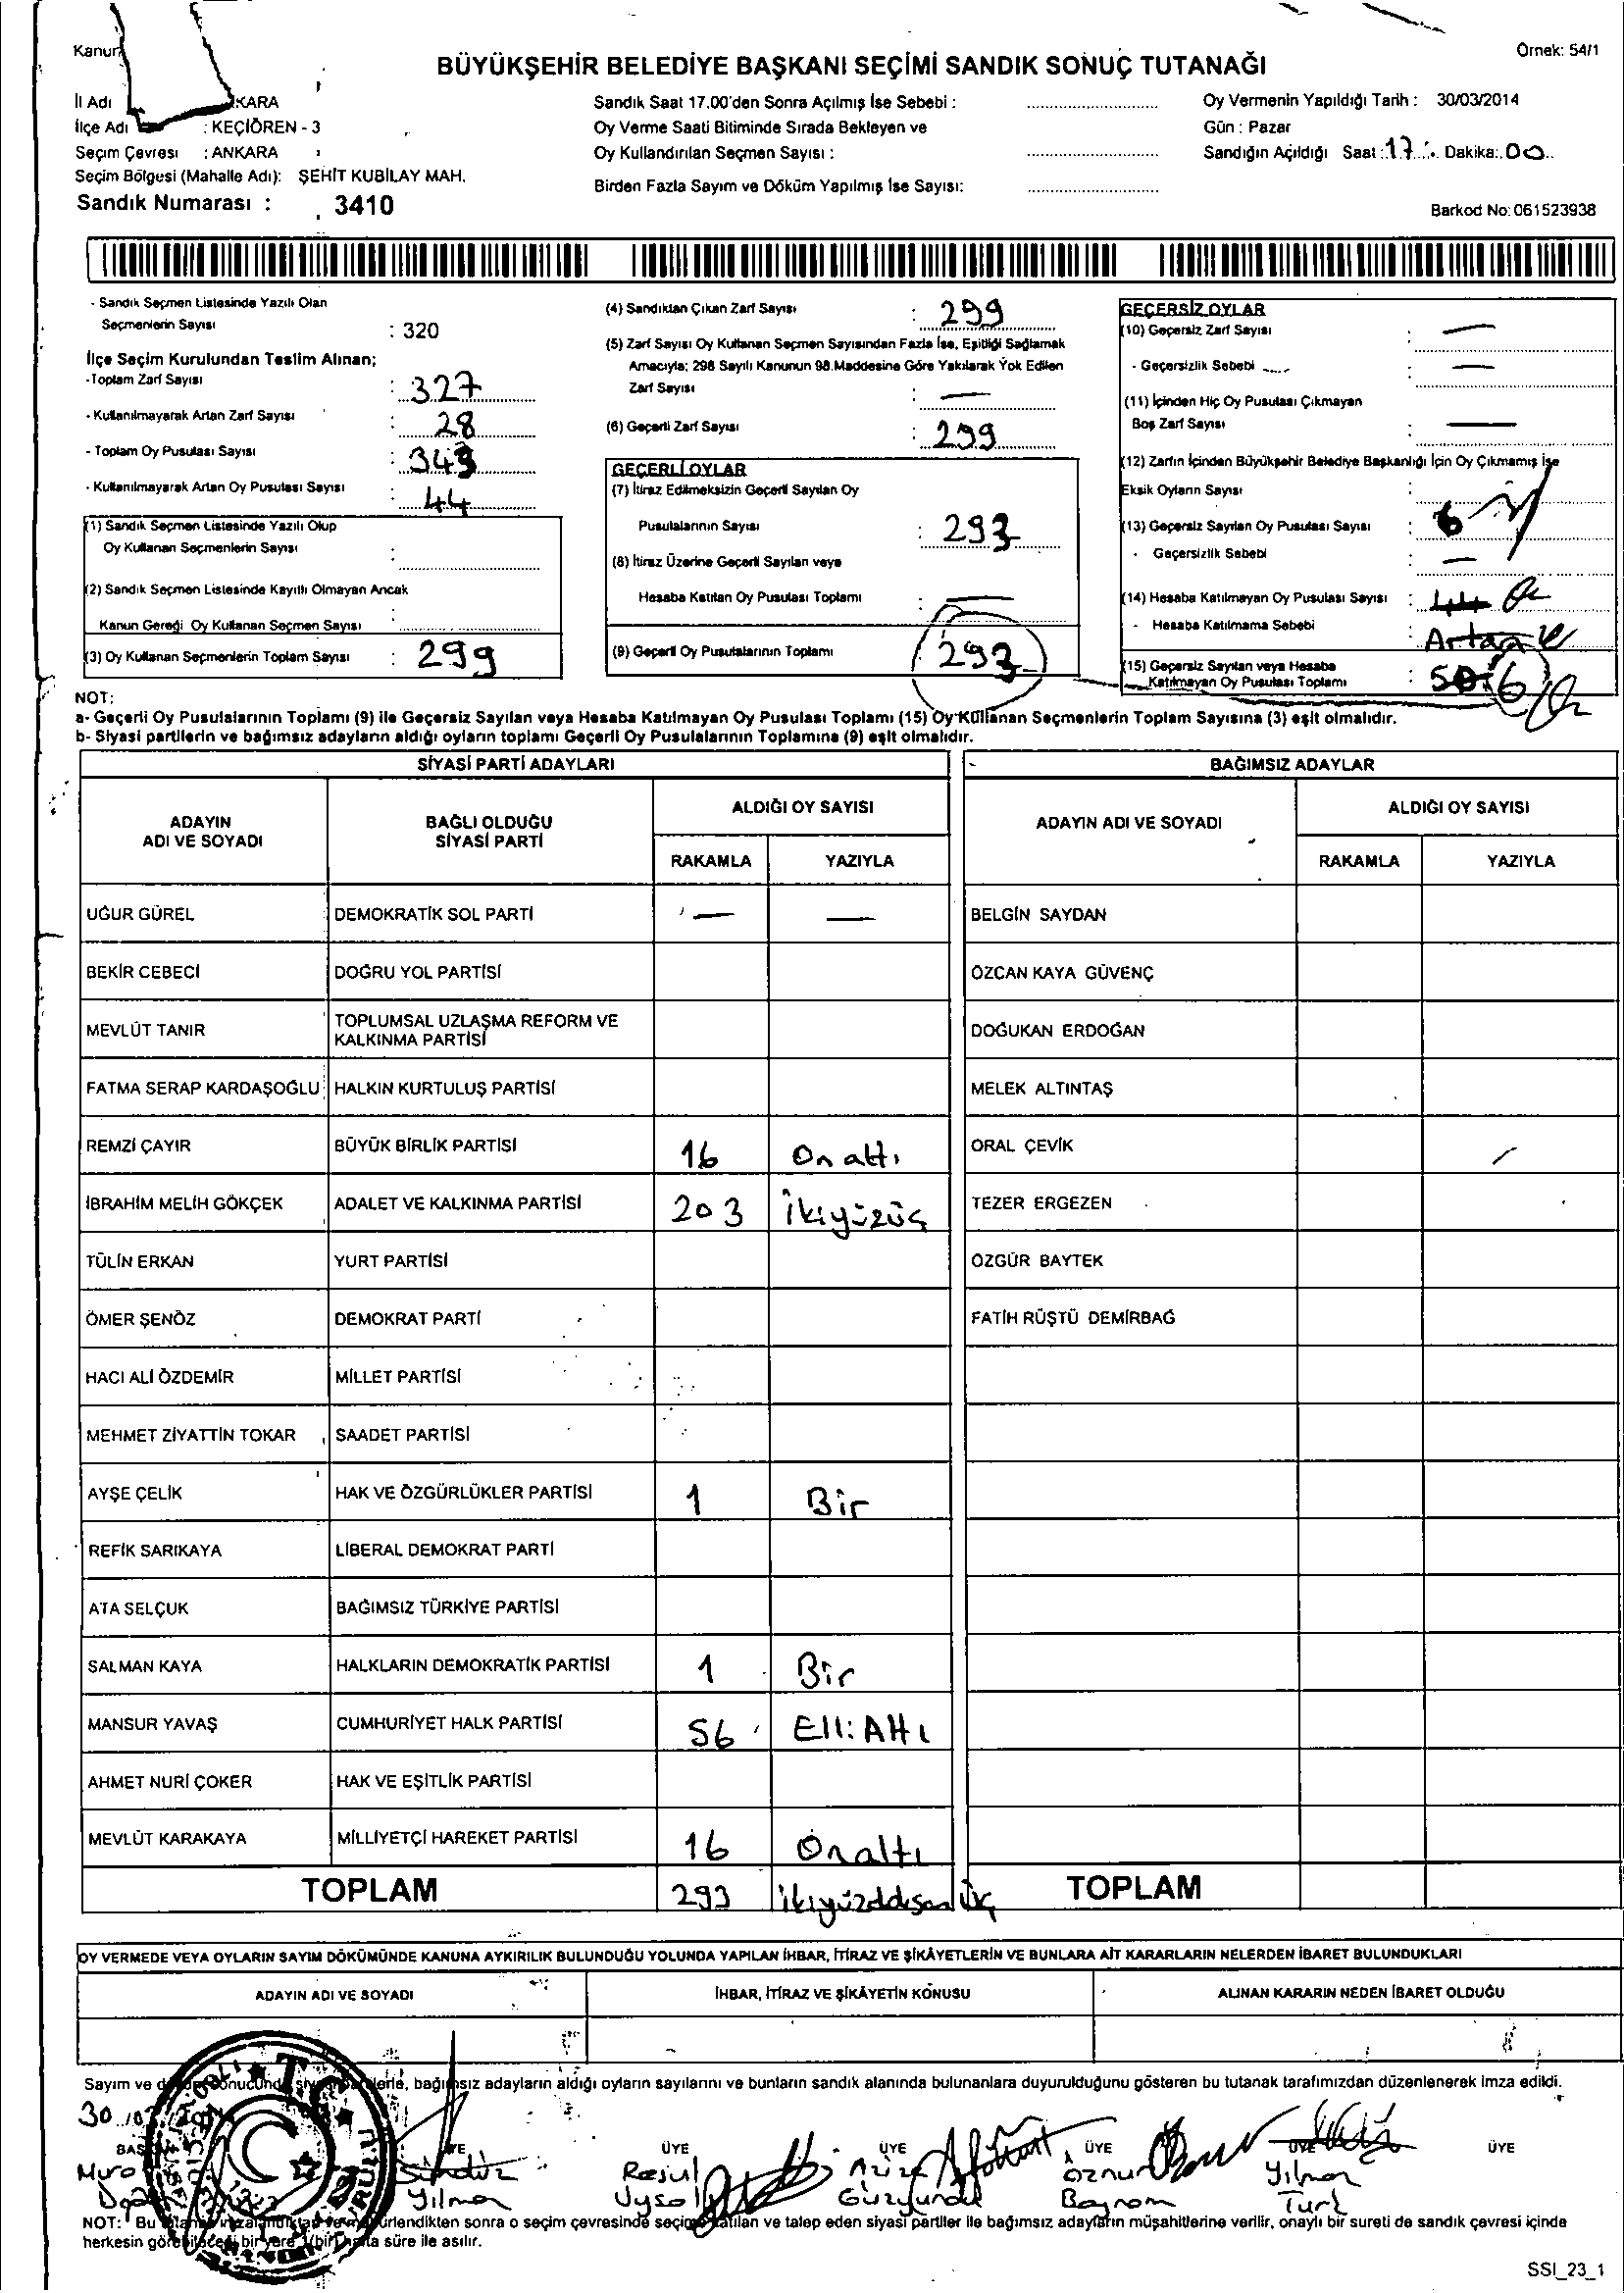 Kanun
Örnek: 54/1
BÜYÜKŞEHİR BELEDİYE BAŞKANI SEÇİMİ SANDIK SONUÇ TUTANAĞI
İl Adı KARA
İlçe Adı : KEÇİÖREN - 3
Seçim Çevresi : ANKARA
Seçim Bölgesi (Mahalle Adı): ŞEHİT KUBİLAY MAH.
Sandık Numarası : 3410
Sandık Saat 17.00'den Sonra Açılmış İse Sebebi :
Oy Verme Saati Bitiminde Sırada Bekleyen ve
Oy Kullandırılan Seçmen Sayısı :
Birden Fazla Sayım ve Döküm Yapılmış İse Sayısı:
Oy Vermenin Yapıldığı Tarih : 30/03/2014
Gün : Pazar
Sandığın Açıldığı Saat : 17 Dakika: 00
Barkod No: 061523938
- Sandık Seçmen Listesinde Yazılı Olan
Seçmenlerin Sayısı : 320
İlçe Seçim Kurulundan Teslim Alınan;
- Toplam Zarf Sayısı : 327
- Kullanılmayarak Artan Zarf Sayısı : 28
- Toplam Oy Pusulası Sayısı : 343
- Kullanılmayarak Artan Oy Pusulası Sayısı : 44
(1) Sandık Seçmen Listesinde Yazılı Olup
Oy Kullanan Seçmenlerin Sayısı :
(2) Sandık Seçmen Listesinde Kayıtlı Olmayan Ancak
Kanun Gereği Oy Kullanan Seçmen Sayısı
(3) Oy Kullanan Seçmenlerin Toplam Sayısı : 299
(4) Sandıktan Çıkan Zarf Sayısı : 299
(5) Zarf Sayısı Oy Kullanan Seçmen Sayısından Fazla İse, Eşitliği Sağlamak
Amacıyla; 298 Sayılı Kanunun 98.Maddesine Göre Yakılarak Yok Edilen
Zarf Sayısı : —
(6) Geçerli Zarf Sayısı : 299
GEÇERLİ OYLAR
(7) İtiraz Edilmeksizin Geçerli Sayılan Oy
Pusulalarının Sayısı : 293
(8) İtiraz Üzerine Geçerli Sayılan veya
Hesaba Katılan Oy Pusulası Toplamı : —
(9) Geçerli Oy Pusulalarının Toplamı 293
GEÇERSİZ OYLAR
(10) Geçersiz Zarf Sayısı : —
- Geçersizlik Sebebi : —
(11) İçinden Hiç Oy Pusulası Çıkmayan
Boş Zarf Sayısı : —
(12) Zarfın İçinden Büyükşehir Belediye Başkanlığı İçin Oy Çıkmamış İse
Eksik Oyların Sayısı :
(13) Geçersiz Sayılan Oy Pusulası Sayısı : 6
- Geçersizlik Sebebi : —
(14) Hesaba Katılmayan Oy Pusulası Sayısı : 44
- Hesaba Katılmama Sebebi : Artan
(15) Geçersiz Sayılan veya Hesaba
Katılmayan Oy Pusulası Toplamı : 50 6
NOT:
a- Geçerli Oy Pusulalarının Toplamı (9) ile Geçersiz Sayılan veya Hesaba Katılmayan Oy Pusulası Toplamı (15) Oy Kullanan Seçmenlerin Toplam Sayısına (3) eşit olmalıdır.
b- Siyasi partilerin ve bağımsız adayların aldığı oyların toplamı Geçerli Oy Pusulalarının Toplamına (9) eşit olmalıdır.
SİYASİ PARTİ ADAYLARI
BAĞIMSIZ ADAYLAR
ADAYIN
ADI VE SOYADI
BAĞLI OLDUĞU
SİYASİ PARTİ
ALDIĞI OY SAYISI
ADAYIN ADI VE SOYADI
ALDIĞI OY SAYISI
RAKAMLA YAZIYLA RAKAMLA YAZIYLA
UĞUR GÜREL DEMOKRATİK SOL PARTİ — — BELGİN SAYDAN
BEKİR CEBECİ DOĞRU YOL PARTİSİ ÖZCAN KAYA GÜVENÇ
MEVLÜT TANIR TOPLUMSAL UZLAŞMA REFORM VE
KALKINMA PARTİSİ DOĞUKAN ERDOĞAN
FATMA SERAP KARDAŞOĞLU HALKIN KURTULUŞ PARTİSİ MELEK ALTINTAŞ
REMZİ ÇAYIR BÜYÜK BİRLİK PARTİSİ 16 On altı ORAL ÇEVİK
İBRAHİM MELİH GÖKÇEK ADALET VE KALKINMA PARTİSİ 203 ikiyüzüç TEZER ERGEZEN
TÜLİN ERKAN YURT PARTİSİ ÖZGÜR BAYTEK
ÖMER ŞENÖZ DEMOKRAT PARTİ FATİH RÜŞTÜ DEMİRBAĞ
HACI ALİ ÖZDEMİR MİLLET PARTİSİ
MEHMET ZİYATTİN TOKAR SAADET PARTİSİ
AYŞE ÇELİK HAK VE ÖZGÜRLÜKLER PARTİSİ 1 Bir
REFİK SARIKAYA LİBERAL DEMOKRAT PARTİ
ATA SELÇUK BAĞIMSIZ TÜRKİYE PARTİSİ
SALMAN KAYA HALKLARIN DEMOKRATİK PARTİSİ 1 Bir
MANSUR YAVAŞ CUMHURİYET HALK PARTİSİ 56 Elli Altı
AHMET NURİ ÇOKER HAK VE EŞİTLİK PARTİSİ
MEVLÜT KARAKAYA MİLLİYETÇİ HAREKET PARTİSİ 16 Onaltı
TOPLAM 293 TOPLAM
OY VERMEDE VEYA OYLARIN SAYIM DÖKÜMÜNDE KANUNA AYKIRILIK BULUNDUĞU YOLUNDA YAPILAN İHBAR, İTİRAZ VE ŞİKÂYETLERİN VE BUNLARA AİT KARARLARIN NELERDEN İBARET BULUNDUKLARI
ADAYIN ADI VE SOYADI İHBAR, İTİRAZ VE ŞİKÂYETİN KONUSU ALINAN KARARIN NEDEN İBARET OLDUĞU
Sayım ve bağımsız adayların aldığı oyların sayılarını ve bunların sandık alanında bulunanlara duyurulduğunu gösteren bu tutanak tarafımızdan düzenlenerek imza edildi.
30
ÜYE ÜYE ÜYE ÜYE ÜYE
Resul Azize Öznur Yılmaz
Yılmaz Uysal Bayram Türk
NOT: Bu sonra o seçim çevresinde seçime katılan ve talep eden siyasi partiler ile bağımsız adayların müşahitlerine verilir, onaylı bir sureti de sandık çevresi içinde
herkesin süre ile asılır.
SSI_23_1